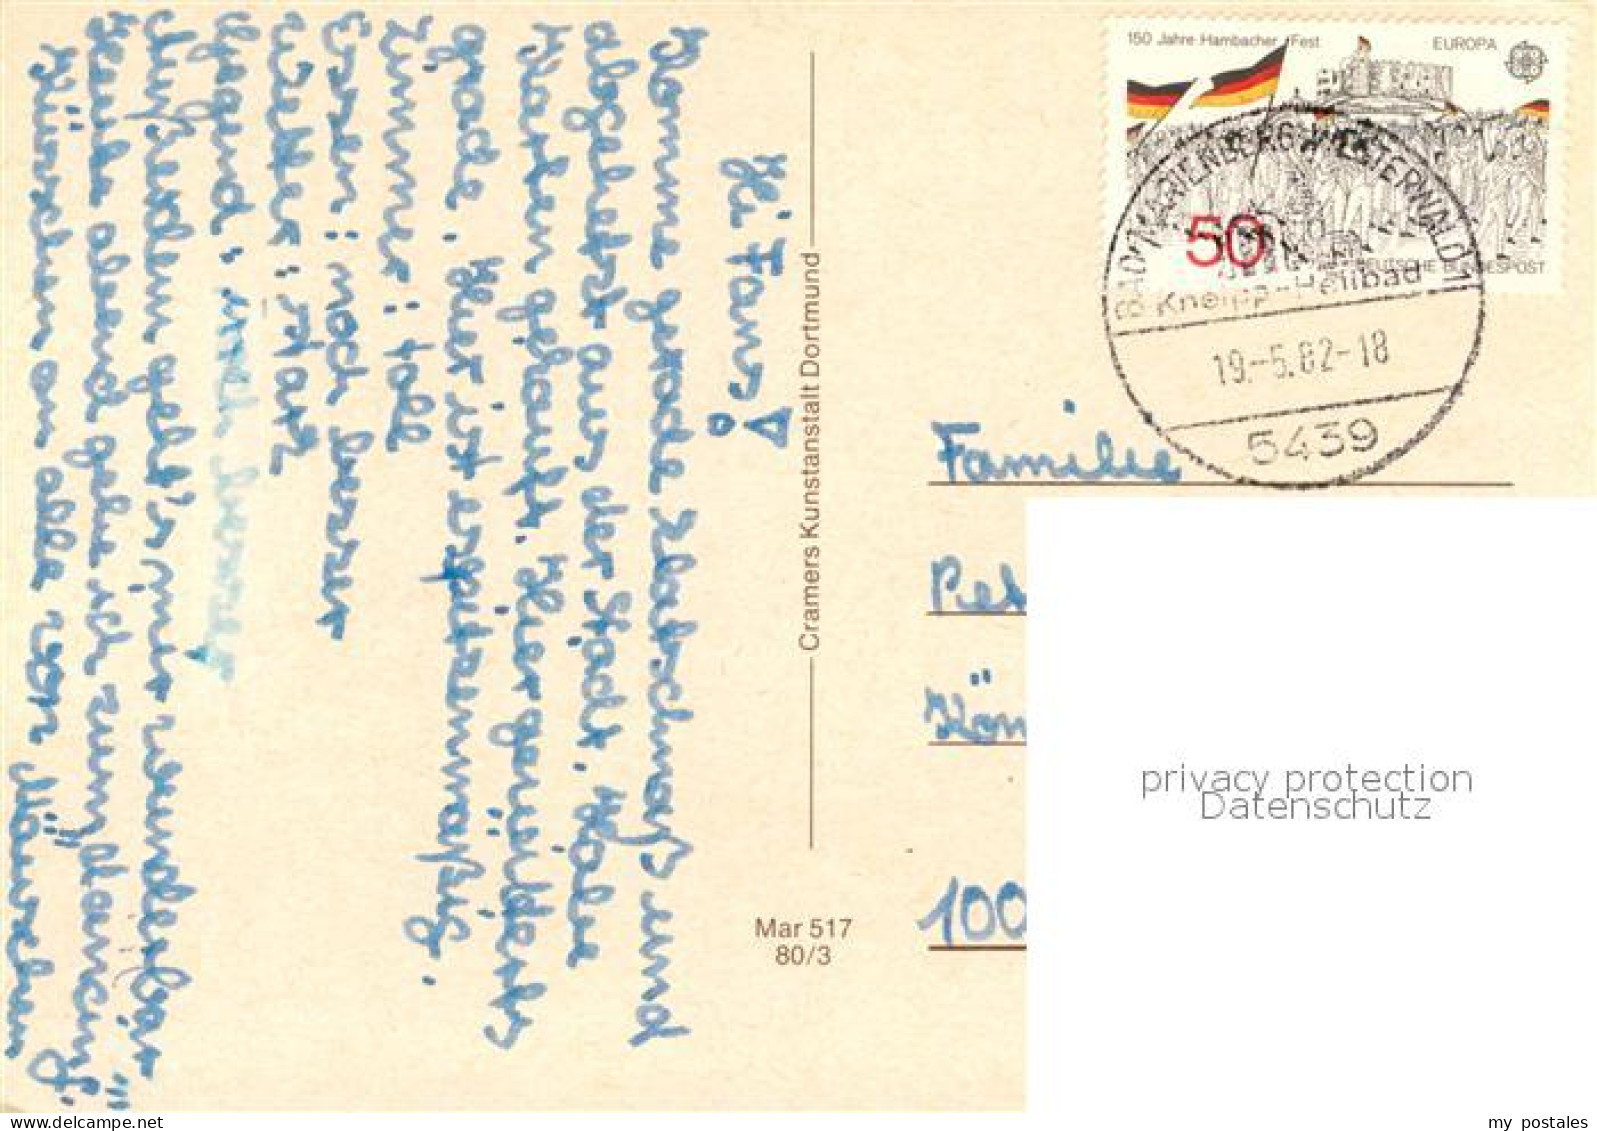 Hi Fans!
Komme gerade klatschnaß und
abgehetzt aus der Stadt. Habe
Karten gekauft. Hier
grade. Hier ist erfaitaemmaßig.
Zimmer: toll
Essen: noch besser
Wetter: matz
Gegend: noch besser
Außerdem geht's mir wunderbar
Heute abend gehe ich zum "Dancing"
Küsschen an alle von Mäuschen
Cramers Kunstanstalt Dortmund
Mar 517
80/3
150 Jahre Hambacher Fest
EUROPA
50
DEUTSCHE BUNDESPOST
BAD MARIENBERG, WESTERWALD 1
Kneipp-Heilbad
19.-5.82-18
5439
Familie
Pet
Kön
100
privacy protection
Datenschutz
my postales